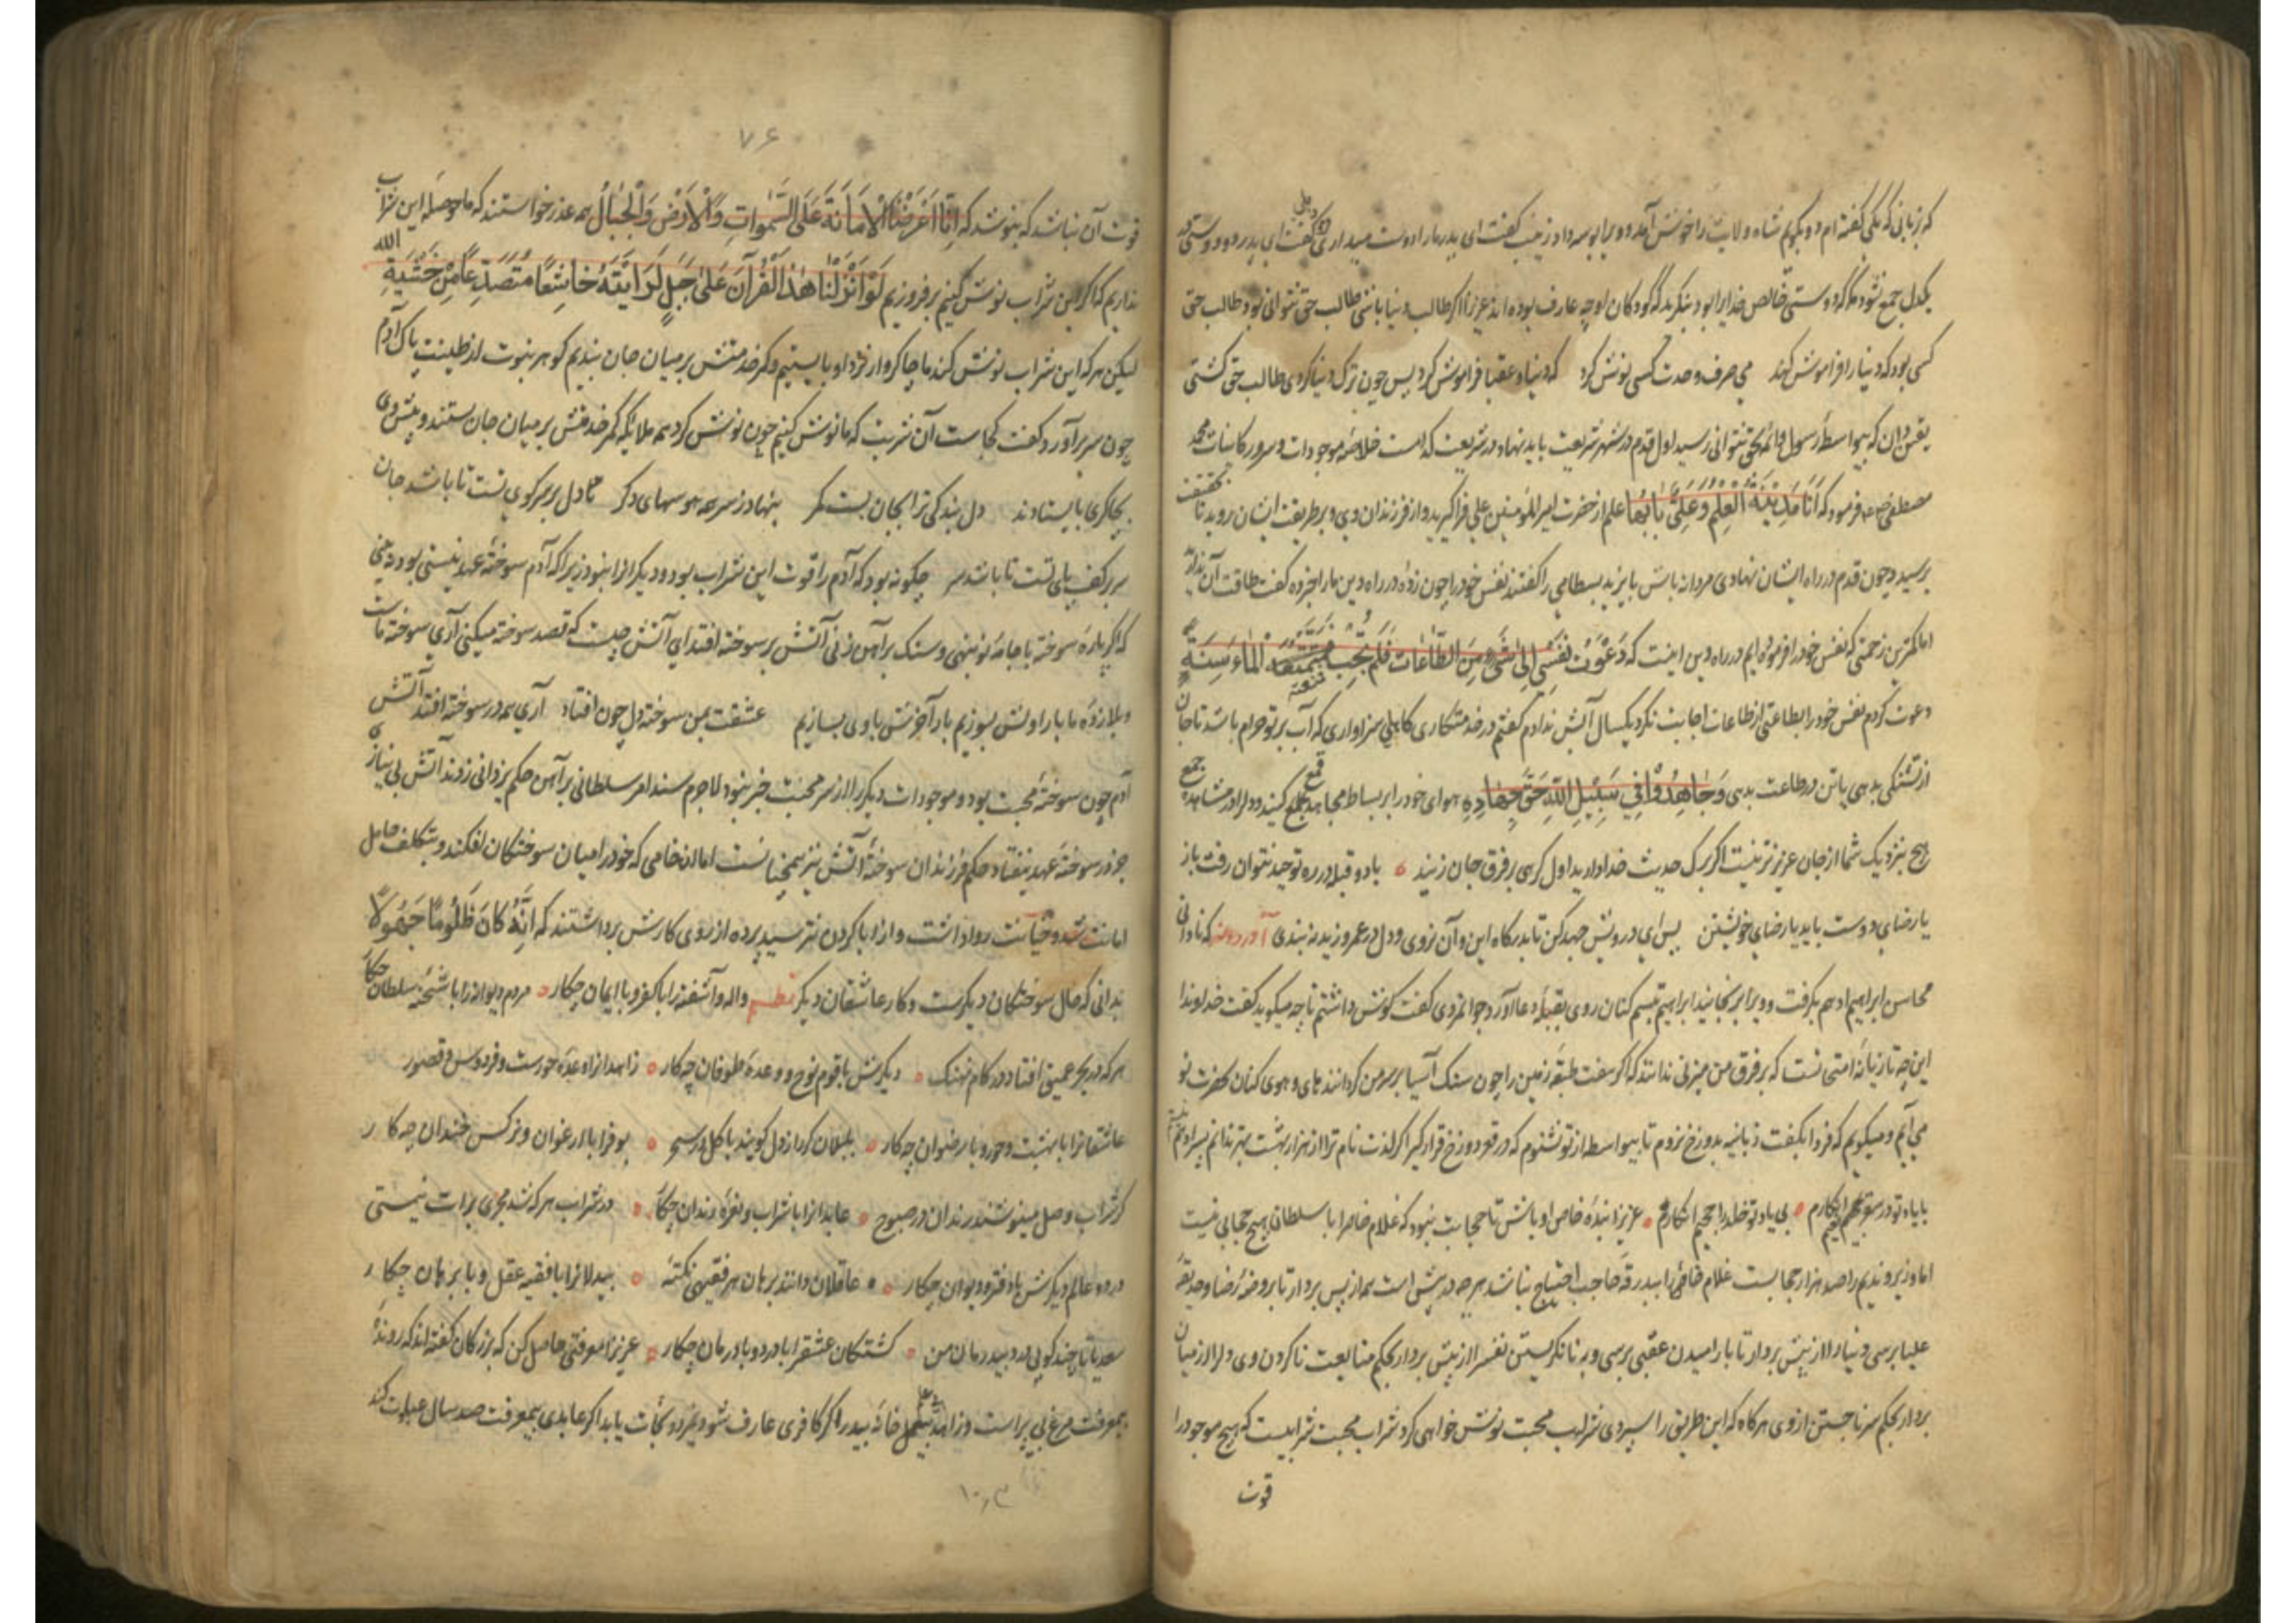 که بزبانی که یکی گفته‌ام دو بگویم شاه ولایت را خوش آمد و ویرا بوسه داد زینب گفت ای پدر ما را دوست میداری گفت بلی گفت ای پدر دو دوستی در
یکدل جمع نشود مگر دوستی خالص خدایرا بود بنگرید که کودکان او چه عارف بوده‌اند عزیزا اگر طالب دنیا باشی طالب حق نتوانی بود طالب حق
کسی بود که دنیا را فراموش کند می صرف وحدت کسی نوش کرد که دنیا و عقبا فراموش کرد پس چون ترک دنیا کردی طالب حق گشتی
یقین دان که بیواسطه رسول و ائمه بحق نتوانی رسید اول قدم در شهر شریعت باید نهاد در شریعت کدامست خلاصه موجودات و سرور کاینات محمد
مصطفی فرمود که اَنَا مَدِینَةُ الْعِلْمِ وَعَلِیٌّ بَابُهَا علم از حضرت امیرالمومنین علی فراگیرید و از فرزندان وی و بر طریقت ایشان روید تا بحقیقت
برسید و چون قدم در راه ایشان نهادی مردانه باش بایزید بسطامی را گفتند نفس خود را چون زدهٔ در راه دین ما را خبر ده گفت طاقت آن ندارید
اما کمترین زحمتی که نفس خود را فرموده‌ایم در راه دین اینست که دَعَوْتُ نَفْسِی اِلیٰ شَیْءٍ مِنَ الطَّاعَاتِ فَلَمْ تُجِبْ فَمَنَعْتُهَا الْمَاءَ سَنَةً
دعوت کردم نفس خود را بطاعتی از طاعات اجابت نکرد یکسال آبش ندادم گفتم در خدمتکاری کاهلی سزاواری که آب بر تو حرام باشد تا جان
از تشنگی بدهی یا تن در طاعت بدهی وَجَاهِدُوْا فِی سَبِیْلِ اللّٰهِ حَقَّ جِهَادِهِ هوای خود را بر بساط مجاهده قمع کنید و دل را در مشاهده جمع
هیچ بنزدیک شما از جان عزیزتر نیست اگر برک حدیث خدا دارید اول کرسی بر فرق جان زنید با دو قبله در ره توحید نتوان رفت باز
یا رضای دوست باید یا رضای خویشتن پس ای درویش جهد کن تا بدرگاه این و آن نروی و دل در عمرو زید نه بندی آورده‌اند که نادانی
محاسن ابراهیم ادهم بگرفت و ویرا برنجانید ابراهیم تبسم کنان روی بقبله دعا آورد جوانمردی گفت گوش داشتم تا چه میگوید گفت خداوندا
این چه تازیانه امتی نست که بر فرق من میزنی ندانند که اگر هفت طبقه زمین را چون سنک آسیا بر سر من گردانند های و هوی کنان بحضرت تو
می‌آیم و میگویم که فردا بگفت زبانیه بدوزخ نروم تا بیواسطه از تو نشنوم که در قعر دوزخ قرار گیر اگر لذت نام ترا از هزار بهشت بهتر ندانم
با یاد تو در سقر نعیم انگارم بی یاد تو خلد را جحیم انگارم عزیزا بندهٔ خاص او باش تا حجابت نبود که غلام خاص را با سلطان هیچ حجابی نیست
اما وزیر و ندیم را صد هزار حجابست غلام خاص را ببدرقه حاجب احتیاج نباشد هر چه در پیش است همه از پیش بردار تا بروضه رضا و حدیقه
علیا برسی دنیا را از پیش بردار تا بارامیدن عقبی برسی و به نانگریستن نفس را از پیش بردار بحکم متابعت ناکردن وی و دل را از میان
بردار بحکم سر ناجستن از وی هرگاه که این طریق را سپردی شراب محبت نوش خواهی کرد شراب محبت شرابیست که هیچ موجود را
قوت
۷۶
قوت آن نباشد که بنوشد که اِنَّا عَرَضْنَا الْاَمَانَةَ عَلَی السَّمٰوَاتِ وَالْاَرْضِ وَالْجِبَالِ همه عذر خواستند که ما حوصله این شراب
نداریم که اگر این شراب نوش کنیم بر فروزیم لَوْ اَنْزَلْنَا هٰذَا الْقُرْآنَ عَلیٰ جَبَلٍ لَرَاَیْتَهُ خَاشِعًا مُتَصَدِّعًا مِنْ خَشْیَةِ اللّٰه
لیکن هر که این شراب نوش کند ما چاکروار نزد او بایستیم و کمر خدمتش بر میان جان بندیم گوهر نبوت از طینت پاک آدم
چون سر برآورد گفت کجاست آن شربت که ما نوش کنیم چون نوش کرد همه ملائکه کمر خدمتش بر میان جان بستند و پیش وی
بچاکری بایستادند دل بندگی ترا بجان بست کمر بنهاد ز سر همه هوسهای دگر تا دل بر سر کوی تست تا باشد جان
سر بر کف پای تست تا باشد سر چگونه بود که آدم را قوت این شراب بود و دیگرانرا نبود زیرا که آدم سوختهٔ عهد نیستی بود
که اگر پارهٔ سوخته با جامهٔ نو بنهی و سنک بر آهن زنی آتش بر سوخته افتد ای آتش چیست که قصد سوخته میکنی آری سوخته ماست
و بلا زدهٔ ما بار اولش بسوزیم بار آخرش باوی بسازیم عشقت بمن سوخته دل چون افتاد آری همه در سوخته افتد آتش
آدم چون سوختهٔ محبت بود و موجودات دیگر را از سر محبت خبر نبود لاجرم سنک امر سلطانی بر آهن حکم یزدانی زدند آتش بی نیازی
جز در سوختهٔ عهد نیفتاد حکم فرزندان سوختهٔ آتش نیز همچنانست اما آن خامی که خود را میان سوختگان افکند و بتکلف حامل
امانت شد و خیانت روا داشت و از ابا کردن نترسید پرده از روی کارش برداشتند که اِنَّهُ کَانَ ظَلُوْمًا جَهُوْلًا
بدانی که حال سوختگان دیگرست و کار عاشقان دیگر نظم واله و آشفته را با کفر و با ایمان چکار مردم دیوانه را با شحنه سلطان چکار
هر که در بحر عمیق افتاد در کام نهنک دیگرش با قوم نوح و وعدهٔ طوفان چه کار زاهدانرا وعدهٔ حورست و فردوس و قصور
عاشقانرا با بهشت و حور و با رضوان چه کار بلبلان که راز دل گویند با گل در سحر بوفرا با ارغوان و نرگس خندان چه کار
کز شراب وصل مینوشند رندان در صبوح عابدانرا با شراب و نعرهٔ رندان چکار در شراب هر که شد مجری برات نیستی
در دو عالم دیگرش با دفتر و دیوان چکار عاقلان دانند برهان هر فقیهی نکته بیدلانرا با فقیه عقل و با برهان چکار
سعدیا تا چند گویی درد بیدرمان من کشتگان عشق را با درد و با درمان چکار عزیزا معرفتی حاصل کن که بزرگان گفته‌اند که روندهٔ
بیمعرفت مرغ بی پر است و زاهد بی عمل خانه بیدر اگر کافری عارف شود بمیرد نجات یابد اگر عابدی بیمعرفت صد سال عبادت کند